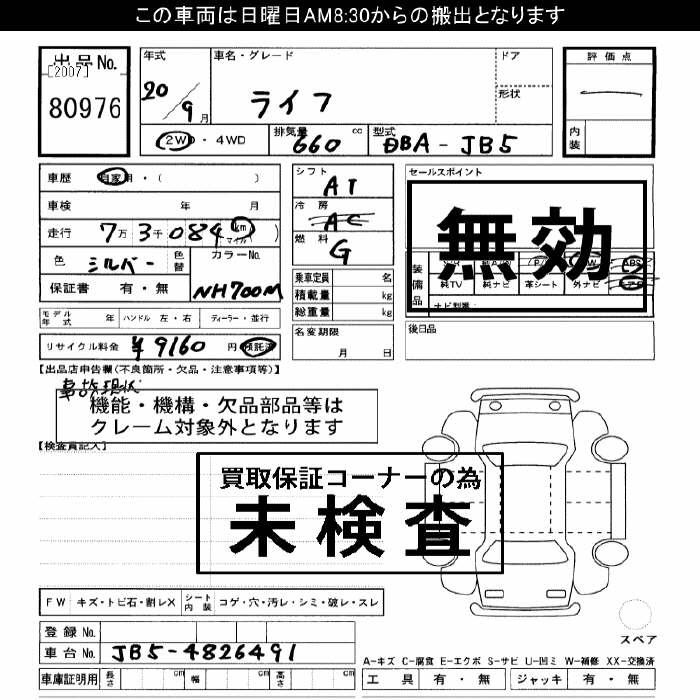 この車両は日曜日AM8:30からの搬出となります
出品No.
[2007]
80976
年式
20/9月
車名・グレード
ライフ
ドア
形状
評価点
内装
2WD・4WD
排気量 660 cc
型式 DBA-JB5
車歴 自家用・( )
車検 年 月
走行 7万3千084 km マイル
色 シルバー 色替
カラーNo.
NH700M
保証書 有・無
シフト AT
冷房 AC
燃料 G
乗車定員 名
積載量 kg
総重量 kg
名変期限
月 日
セールスポイント
無効
装備品
純TV 純ナビ 革シート 外ナビ
ナビ型番:
後日品
モデル年式 年 ハンドル 左・右 ディーラー・並行
リサイクル料金 ¥9160 円 預託済
【出品店申告欄(不良箇所・欠品・注意事項等)】
事故現状
機能・機構・欠品部品等は
クレーム対象外となります
【検査員記入】
買取保証コーナーの為
未検査
FW キズ・トビ石・割レX シート内装 コゲ・穴・汚レ・シミ・破レ・スレ
スペア
登録No.
車台No. JB5-4826491
車庫証明用 長さ cm 幅 cm 高さ cm
A-キズ C-腐食 E-エクボ S-サビ U-凹ミ W-補修 XX-交換済
工具 有・無 ジャッキ 有・無